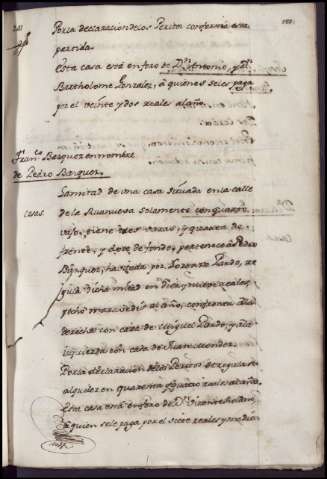 Por la declaracion de los Peritos conforma esta
partida.
Esta casa está en foro de Dn. Antonio, y Dn.
Bartholome Gonzalez, á quienes se le paga
por el veinte y dos reales al año.
Franco. Bazquez en nombre
de Pedro Banquez.
casas
La mitad de una casa situada en la calle
de la Ruanueva solamente con quarto
vajo, tiene diez varas, y quarta de
frente, y de fondo, pertenece á Pedro
havitada por Lorenzo Pardo, se
dicha mitad en diez y reales,
ocho maravedis al año, confronta á la
derecha con casa de Miguel Pardo, y á la
izquierda con casa de Juan Mendez.
Por la declaración de los Peritos se regula su
alquiler en quarenta y quatro reales al año.
Esta casa está en foro de Dn. Vicente
á quien se le paga por el siete reales y medio